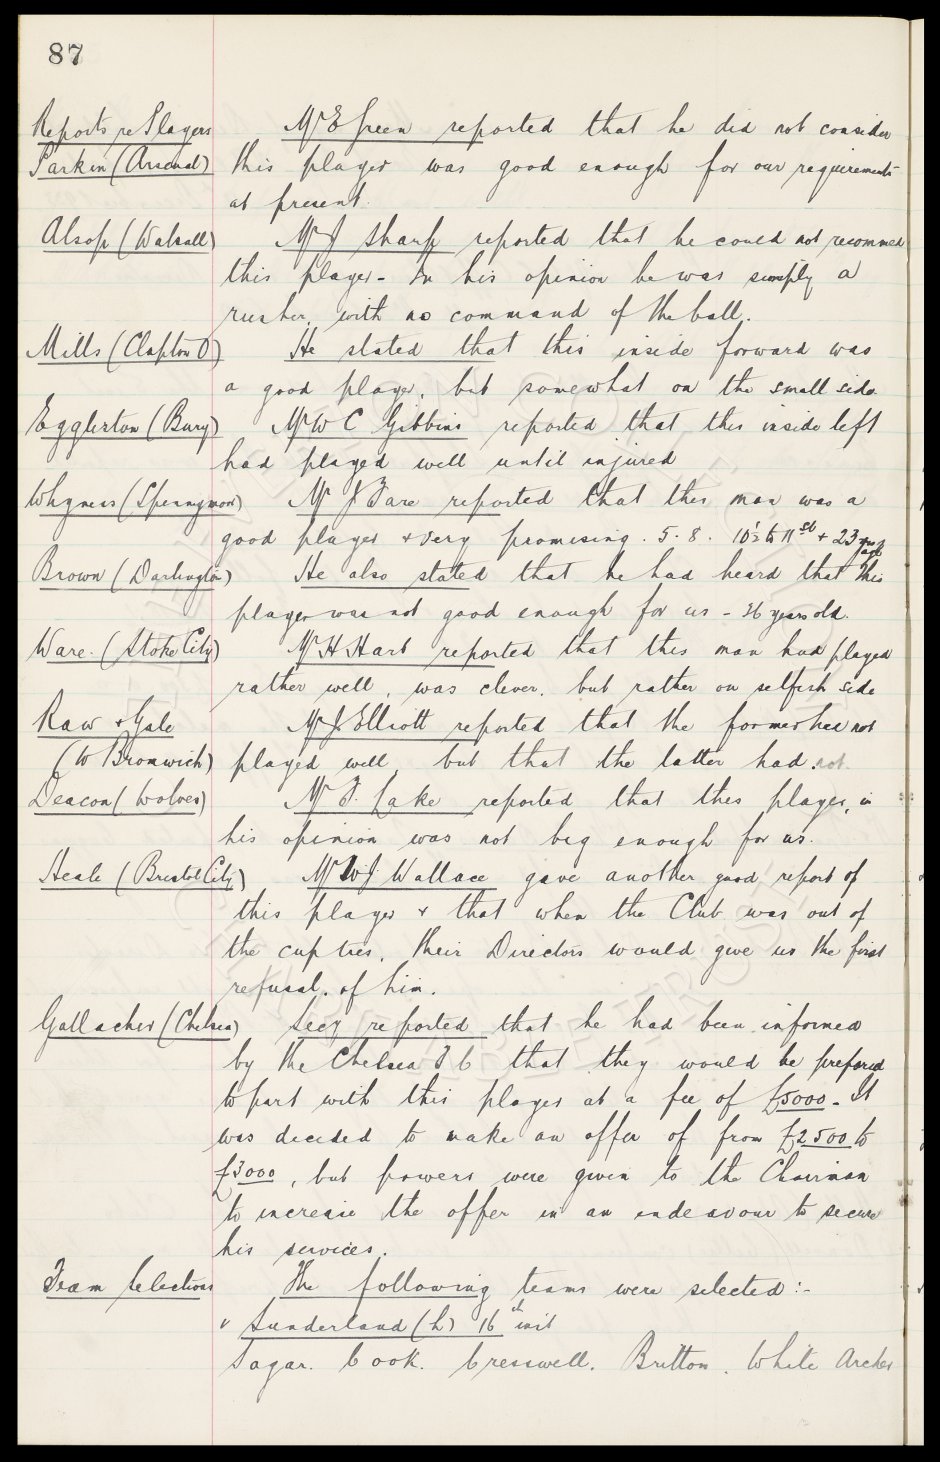 87
Reports re Players Mr E Green reported that he did not consider
Parkin (Arsenal) this player was good enough for our requirements
at present.
Alsop (Walsall) Mr J Sharp reported that he could not recommed
this player - In his opinion he was simply a
rusher, with no command of the ball.
Mills (Clapton O) He stated that this inside forward was
a good player, but somewhat on the small side.
Egglerton (Bury) Mr W C Gibbins reported that this inside left
had played well until injured
Whyness (Spennymoor) Mr J Fare reported that this man was a
good player + very promising. 5.8. 10½ to 11 st + 23 yrs age
Brown (Darlington) He also stated that he had heard that this
player was not good enough for us - 26 years old.
Ware. (Stoke City) Mr H Hart reported that this man had played
rather well, was clever, but rather on selfish side
Raw + Gale Mr J Elliott reported that the former had not
(W Bromwich) played well, but that the latter had. not.
Deacon (Wolves) Mr F. Lake reported that this player, in
his opinion was not big enough for us.
Heale (Bristol City) Mr W J Wallace gave another good report of
this player + that when the Club was out of
the cup ties, their Directors would give us the first
refusal. of him.
Gallacher (Chelsea) Secy reported that he had been informed
by the Chelsea F C that they would be prepared
to part with this player at a fee of £5000 - It
was decided to make an offer of from £2500 to
£3000, but powers were given to the Chairman
to increase the offer in an endeavour to secure
his services.
Team Selections The following teams were selected :-
v Sunderland (h) 16th inst
Sagar. Cook. Cresswell. Britton. White Archer